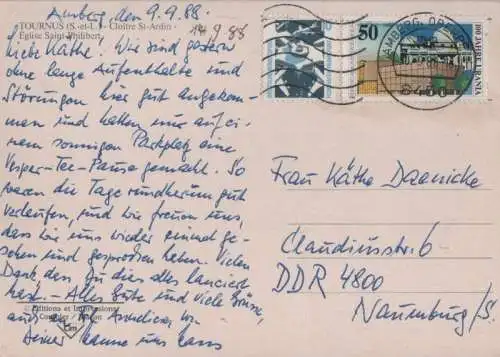 Amberg den 9.9.88.
14 9 88
TOURNUS (S.-et-L.) - Cloître St-Ardin -
Église Saint-Philibert
Liebe Käthe! Wir sind gestern
ohne lange Aufenthalte und
Störungen hier gut angekom-
men und hatten nur auf ei-
nem sonnigen Parkplatz eine
Vesper-Tee-Pause gemacht. So
waren die Tage rundherum gut
verlaufen, und wir freuen uns,
dass wir uns wieder einmal ge-
sehen und gesprochen haben. Vielen
Dank den Du dies alles lanciert
hast. - Alles Gute und viele Grüsse,
auch an Annelies von
Deiner Hanne und Hans
© Editions et Impressions
Combier
50
AMBERG, OBERPF
8450
100 JAHRE URANIA
Frau Käthe Daenicke
Claudiusstr. 6
DDR 4800
Naumburg/S.